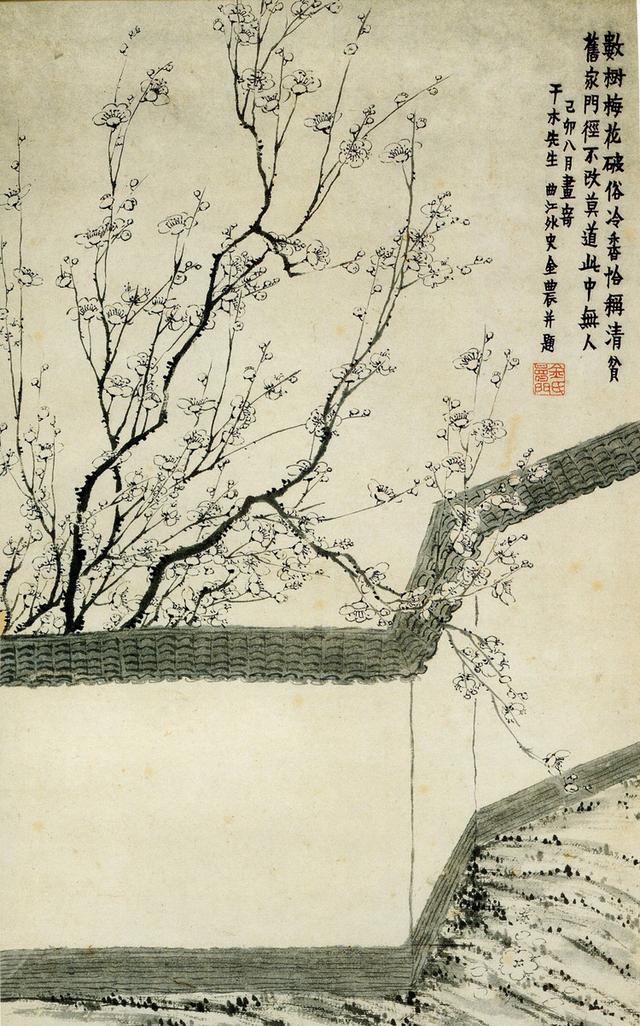 數樹梅花俗冷香恰稱清貧
舊家門徑不改莫道此中無人
己卯八月畫寄
干木先生 曲江外史金農并題
金氏壽門